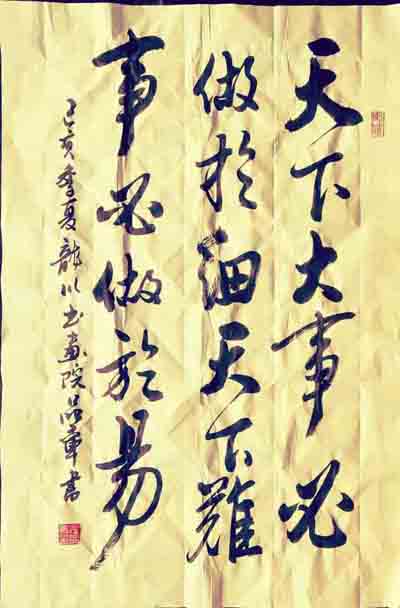 天下大事必
做於細天下難
事必做於易
己亥季夏龍川書畫院品章書